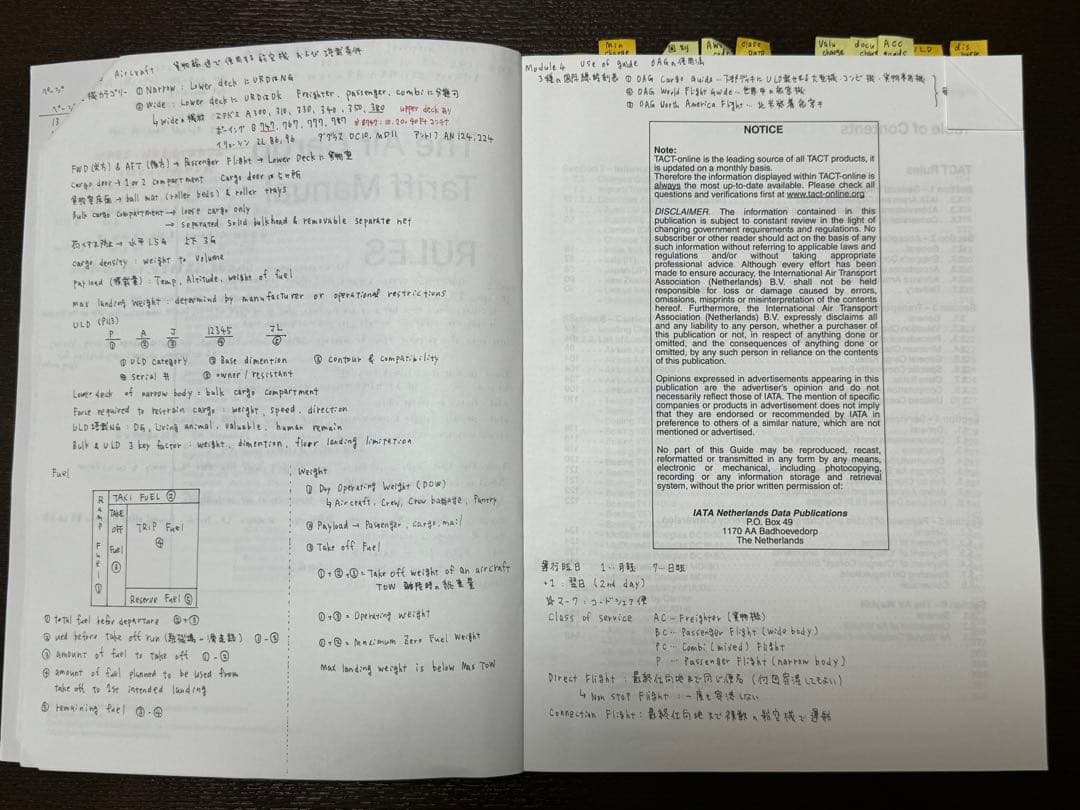 Aircraft : 貨物輸送で使用する航空機 および 搭載条件
ページ
13
機カテゴリー ① Narrow : Lower deck に ULDはNG
② Wide : Lower deck に ULDはOK Freighter, passenger, combi に分類可
↳ Wide の機種 エアバス A300, 310, 330, 340, 350, 380 upper deck あり
ボーイング B 747, 767, 777, 787 ※B747 : 10. 20. 40 Ft コンテナ
イリューシン IL 86, 96 ダグラス DC10, MD11 アントノフ AN 124, 224
FWD (前方) & AFT (後方) → Passenger Flight → Lower Deck に貨物室
Cargo door → 1 or 2 compartment Cargo door は
貨物室床面 → ball mat (roller beds) & roller trays
Bulk cargo compartment → loose cargo only
→ separated solid bulkhead & removable separate net
荷くずれ防止 → 水平 1.5G 上下 3G
cargo density : weight to volume
payload (搭載量) : Temp, Altitude, weight of fuel
max landing weight : determind by manufacturer or operational restrictions
ULD (P113)
P A J 12345 JL
① ② ③ ④ ⑤
① ULD category ② Base dimention ③ contour & compatibility
④ serial # ⑤ owner / resistant
Lower deck of narrow body = bulk cargo compartment
Force required to restrain cargo : weight, speed, direction
ULD搭載NG : DG, Living animal, valuable, human remain
Bulk & ULD 3 key factor : weight, dimention, floor landing limitation
Fuel
Ramp Fuel ①
TAXI FUEL ②
TAKE OFF Fuel ③
TRIP Fuel ④
Reserve Fuel ⑤
① total fuel befor departure ②+③
② ued before take off run (駐機場~滑走路) ①-③
③ amount of fuel to take off ①-②
④ amount of fuel planned to be used from
take off to 1st intended landing
⑤ remaining fuel ③-④
Weight
① Dry Operating Weight (DOW)
↳ Aircraft, Crew, Crew baggage, Pantry
② Payload → Passenger, cargo, mail
③ Take off Fuel
①+②+③ = Take off weight of an aircraft
TOW 離陸時の総重量
①+③ = Operating weight
①+② = Maximum Zero Fuel Weight
Max landing weight is below Max TOW
Min charge
国別
class
Valu charge
docu
ACC
ULD
dis
Module 4 Use of guide OAGの使用法
3種の国際線時刻表 ① OAG Cargo Guide … 下部デッキに ULD載せれる大型機・コンビ機・貨物専用機
② OAG World Flight Guide … 世界中の航空機
③ OAG North America Flight … 北米
NOTICE
Note:
TACT-online is the leading source of all TACT products, it
is updated on a monthly basis.
Therefore the information displayed within TACT-online is
always the most up-to-date available. Please check all
questions and verifications first at www.tact-online.org
DISCLAIMER. The information contained in this
publication is subject to constant review in the light of
changing government requirements and regulations. No
subscriber or other reader should act on the basis of any
such information without referring to applicable laws and
regulations and/or without taking appropriate
professional advice. Although every effort has been
made to ensure accuracy, the International Air Transport
Association (Netherlands) B.V. shall not be held
responsible for loss or damage caused by errors,
omissions, misprints or misinterpretation of the contents
hereof. Furthermore, the International Air Transport
Association (Netherlands) B.V. expressly disclaims all
and any liability to any person, whether a purchaser of
this publication or not, in respect of anything done or
omitted, and the consequences of anything done or
omitted, by any such person in reliance on the contents
of this publication.
Opinions expressed in advertisements appearing in this
publication are the advertiser's opinion and do not
necessarily reflect those of IATA. The mention of specific
companies or products in advertisement does not imply
that they are endorsed or recommended by IATA in
preference to others of a similar nature, which are not
mentioned or advertised.
No part of this Guide may be reproduced, recast,
reformatted or transmitted in any form by any means,
electronic or mechanical, including photocopying,
recording or any information storage and retrieval
system, without the prior written permission of:
IATA Netherlands Data Publications
P.O. Box 49
1170 AA Badhoevedorp
The Netherlands
運行曜日 1…月曜 7…日曜
+1 : 翌日 (2nd day)
☆マーク : コードシェア便
Class of service AC … Freighter (貨物機)
BC … Passenger Flight (wide body)
PC … Combi (mixed) Flight
P … Passenger Flight (narrow body)
Direct Flight : 最終仕向地まで同じ便名 (何回寄港してもOK)
↳ Non stop Flight : 一度も寄港しない
Connection Flight : 最終仕向地まで複数の航空機で運航